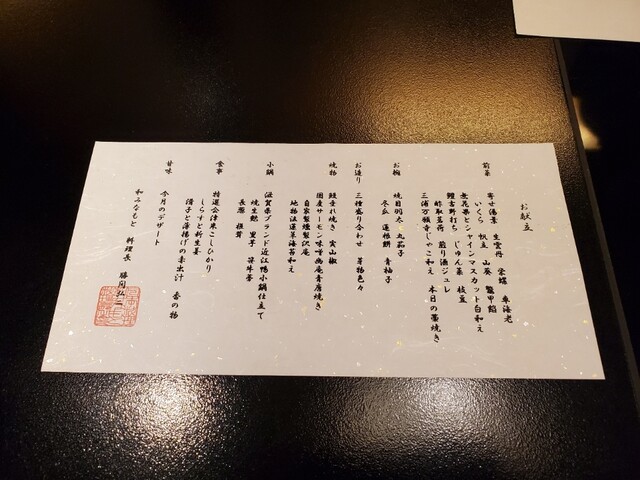 お献立
前菜 寄せ湯葉 生雲丹 栄螺 車海老
いくら 帆立 山葵 鼈甲餡
無花果とシャインマスカット白和え
鱧吉野打ち じゅん菜 枝豆
酢取茗荷 煎り酒ジュレ
三浦万願寺じゃこ和え 本日の薬焼き
お椀 焼目鱧 丸茄子
冬瓜 蓮根餅 青柚子
お造り 三種盛り合わせ 芽物色々
焼物 鰻垂れ焼き 実山椒
国産サーモン味噌幽庵青唐焼き
自家製燻製沢庵
地物法蓮草海苔和え
小鍋 滋賀県ブランド近江鴨小鍋仕立て
焼生麩 里芋 笹牛蒡
長葱 椎茸
食事 特選会津米こしひかり
しらすと新生姜
滑子と薄揚げの赤出汁 香の物
甘味 今月のデザート
和みなもと 料理長 勝岡弘二